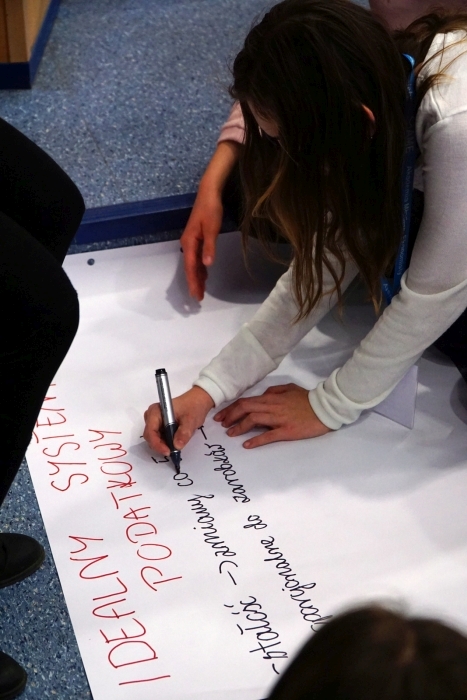 IDEALNY SYSTEM
PODATKOWY
- stałość -> zmiany co
proporcjonalne do zarobków -